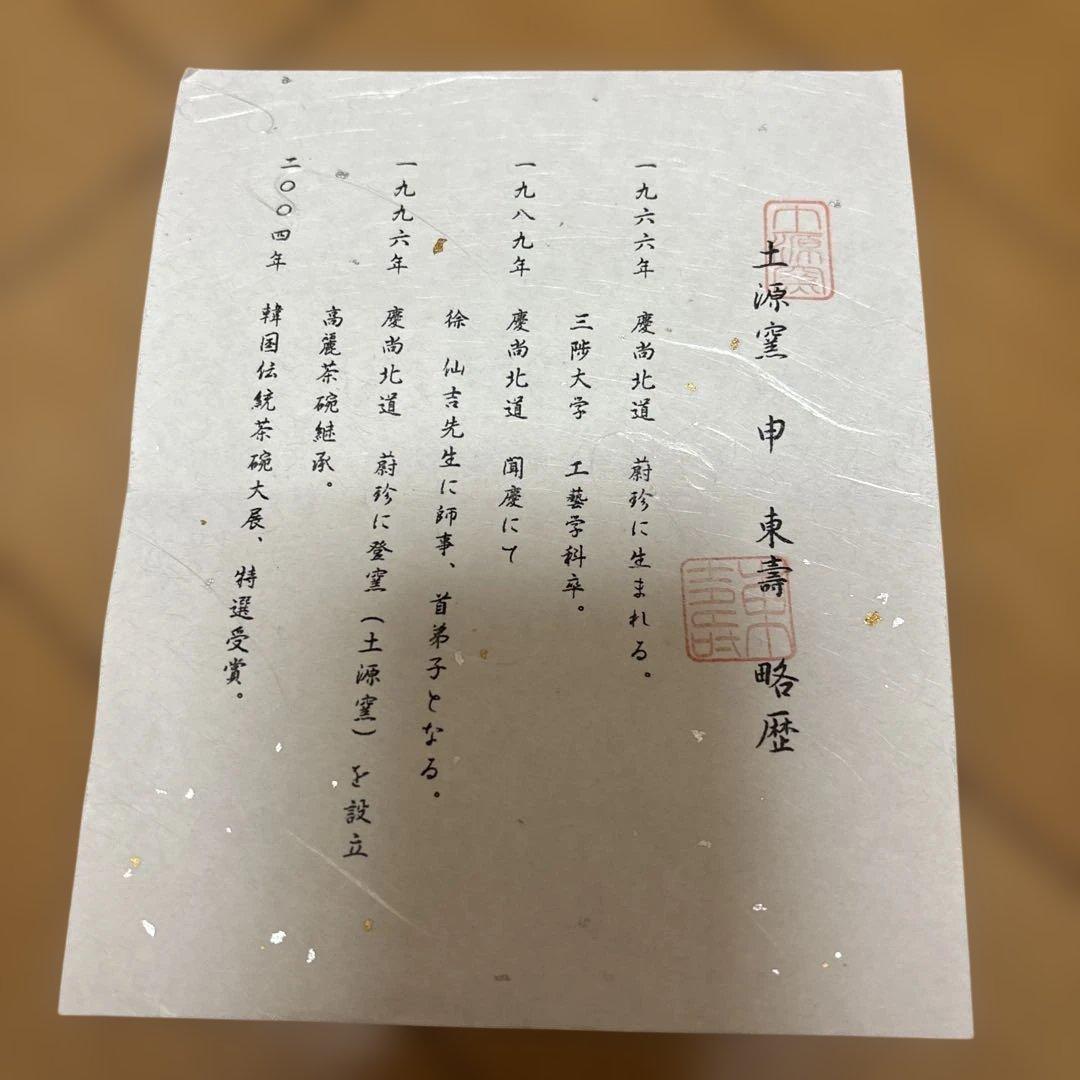 土源窯　申　東壽　略歴
土源窯
一九六六年　慶尚北道　蔚珍に生まれる。
三陟大学　工藝学科卒。
一九八九年　慶尚北道　聞慶にて
徐　仙吉先生に師事、首弟子となる。
一九九六年　慶尚北道　蔚珍に登窯（土源窯）を設立
高麗茶碗継承。
二〇〇四年　韓国伝統茶碗大展、特選受賞。